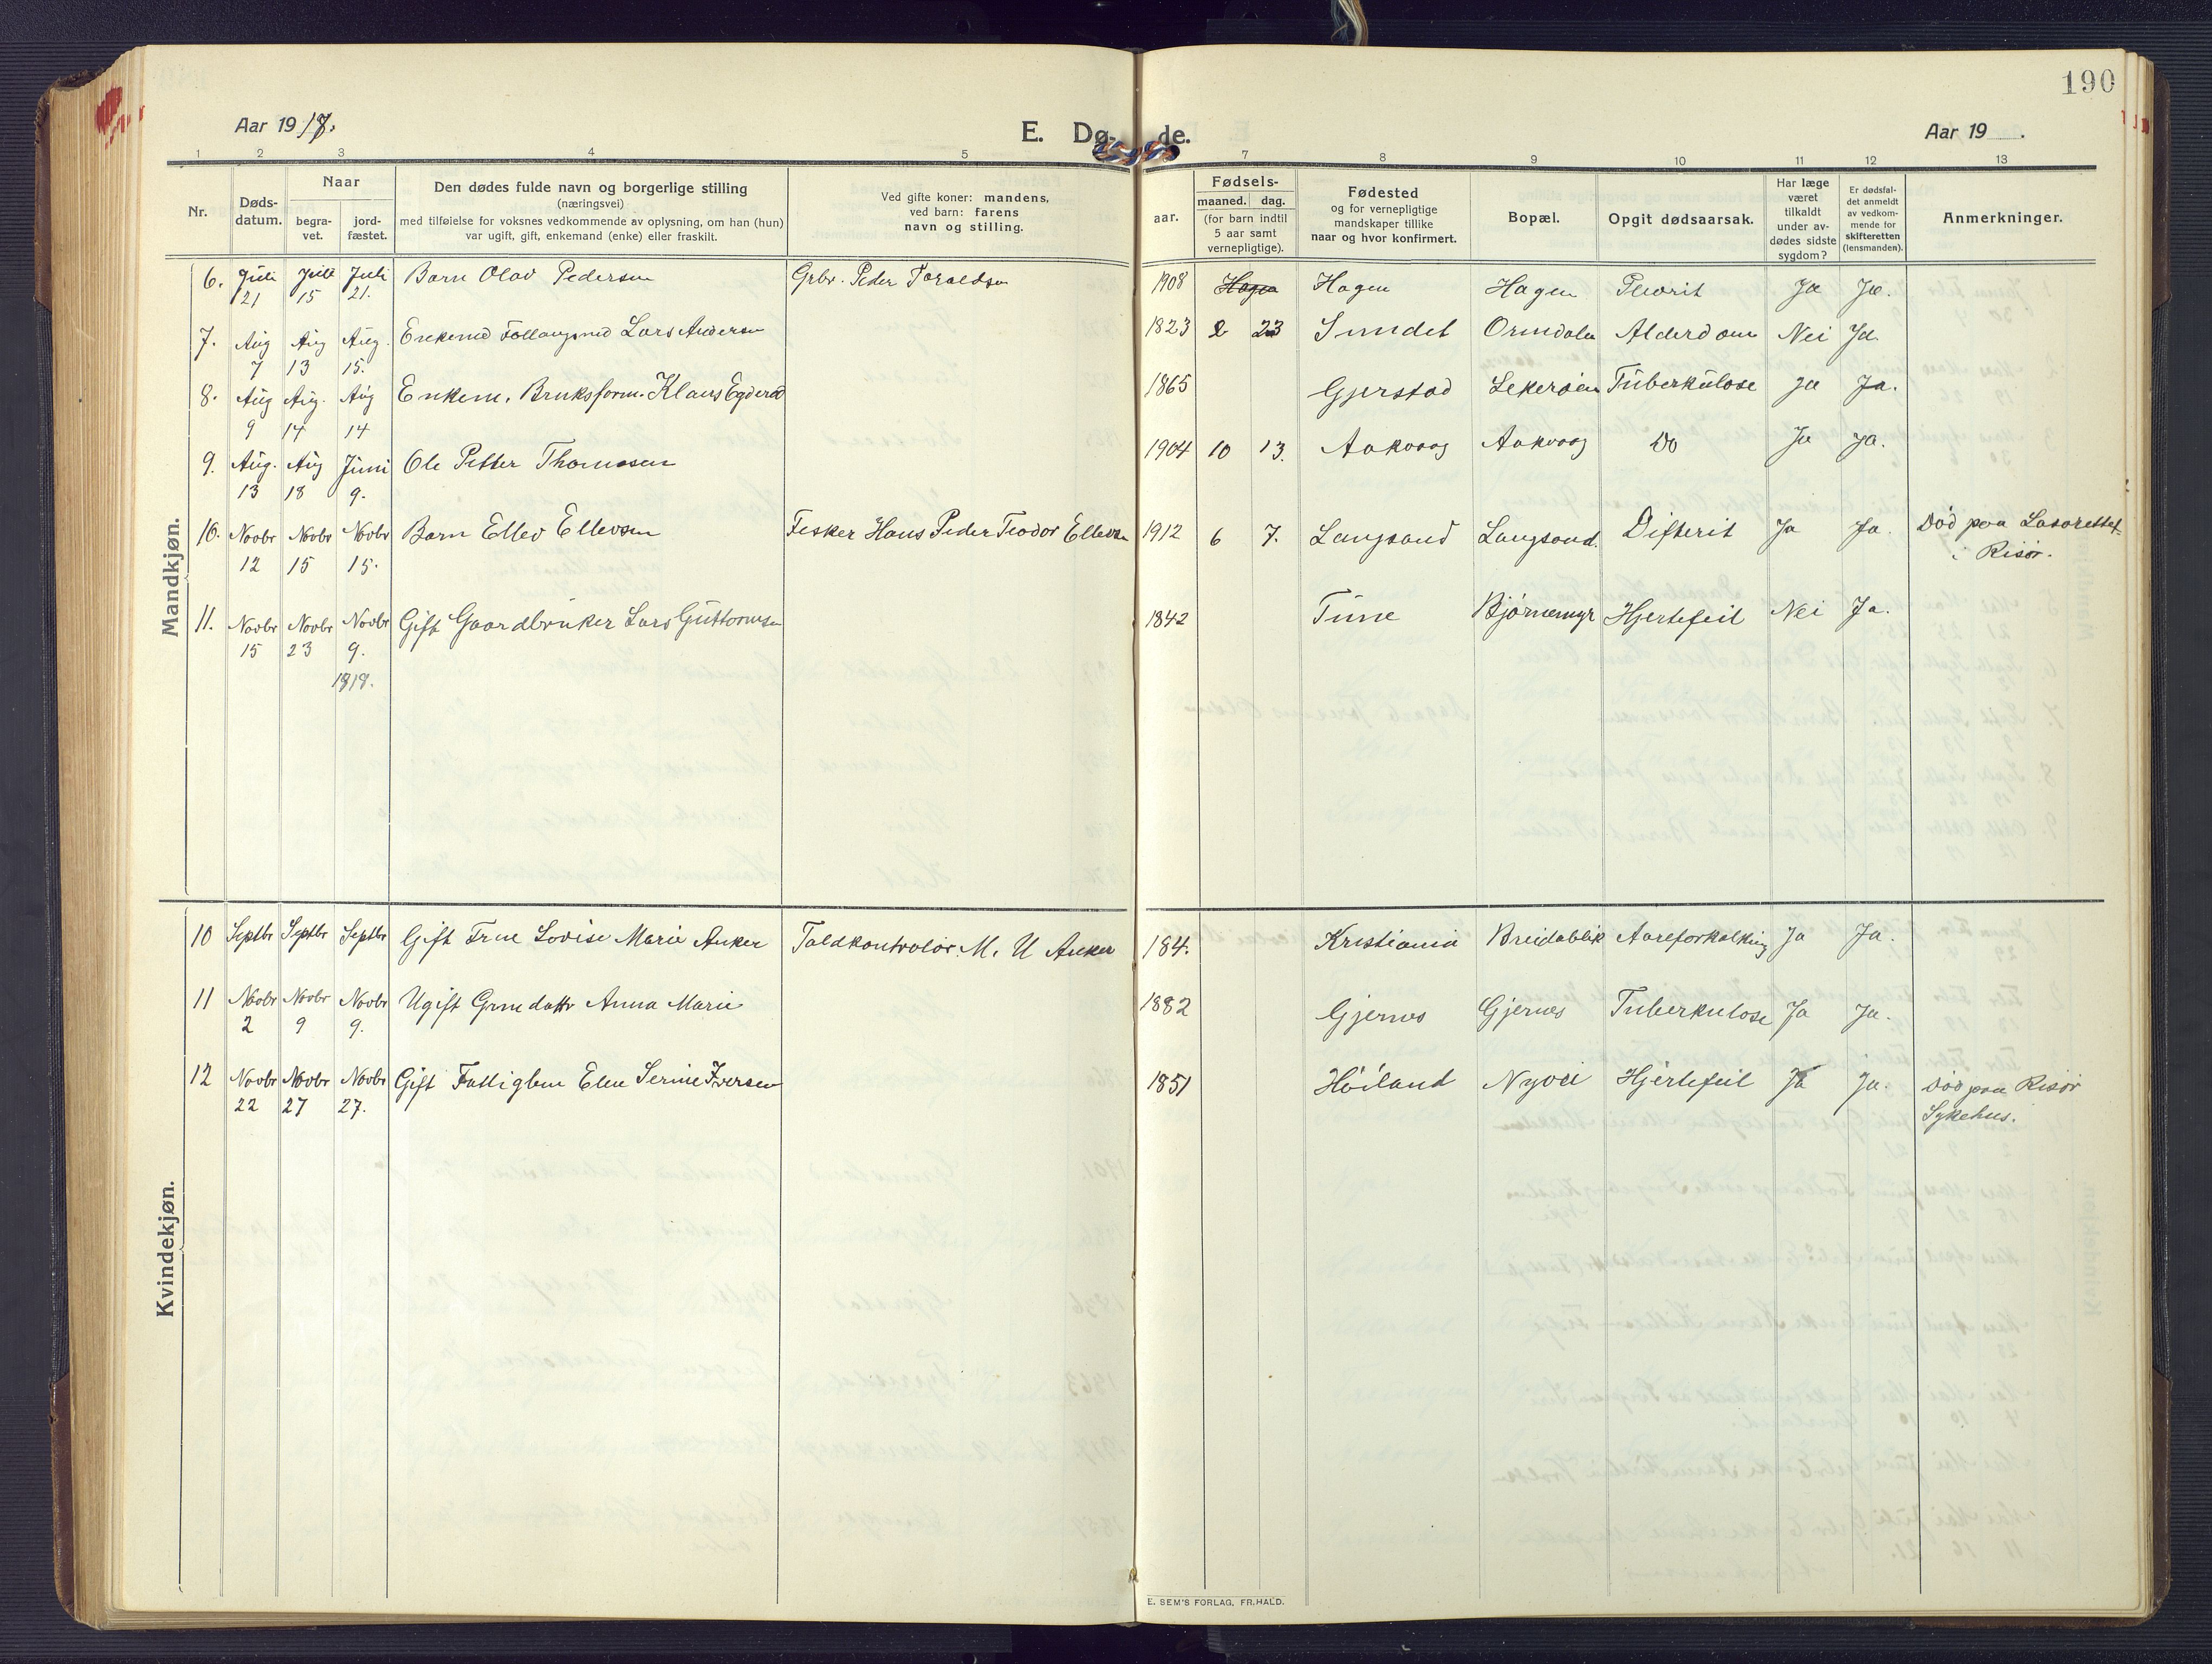 190
Aar 1917.
E. Dø-
de.
Aar 19 .
1 2 3 4 5 7 8 9 10 11 12 13
Nr.
Døds-
datum.
Naar
begra-
vet.
jord-
fæstet.
Den dødes fulde navn og borgerlige stilling
(næringsvei)
med tilføielse for voksnes vedkommende av oplysning, om han (hun)
var ugift, gift, enkemand (enke) eller fraskilt.
Ved gifte koner: mandens,
ved barn: farens
navn og stilling.
aar.
Fødsels-
maaned. dag.
(for barn indtil
5 aar samt
vernepligtige).
Fødested
og for vernepligtige
mandskaper tillike
naar og hvor konfirmert.
Bopæl.
Opgit dødsaarsak.
Har læge
været
tilkaldt
under av-
dødes sidste
sygdom?
Er dødsfal-
det anmeldt
av vedkom-
mende for
skifteretten
(lensmanden).
Anmerkninger.
Mandkjøn.
6. Juli Juli Juli Barn Olav Pedersen Grbr. Peder Taraldsen 1908 Hagen Hagen Ja Ja.
21 15 21.
7. Aug Aug Aug. Lars Andersen 1823 2 23 Sundet Ormdalen Alderdom Nei Ja
7 13 15.
8. Aug Aug. Aug Enkem. Bruksform. Klaus 1865 Gjerstad Tuberkulose Ja Ja.
9 14 14
9. Aug. Aug Juni Ole Petter Thomassen 1904 10 13. Aakvaag Aakvaag Do Ja Ja.
13 18 9.
10. Novbr Novbr Novbr Barn Ellev Ellevsen Fisker Hans Peder Teodor Ellevsen 1912 6 7. Langsand Langsand. Difterit Ja Ja. Død paa Lasarettet
12 15 15. i Risør.
11. Novbr Novbr Novbr Gift Gaardbruker Lars Guttormsen 1842 Bjørnemyr Hjertefeil Nei Ja.
15 23 9.
1918.
Kvindekjøn.
10 Septbr Septbr Septbr Gift Frue Lovise Marie Anker Toldkontrolør. M. U Anker 184. Kristiania Breidablik Aareforkalkning Ja Ja.
11 Novbr Novbr Novbr Ugift Anna Marie 1882 Gjernes Gjernes Tuberkulose Ja Ja.
2 9 9.
12 Novbr Novbr Novbr Gift Fattiglem Elen Serine Iversen 1851 Høiland Hjertefeil Ja Ja. Død paa Risør
22 27 27. Sykehus.
E. SEM'S FORLAG, FR.HALD.